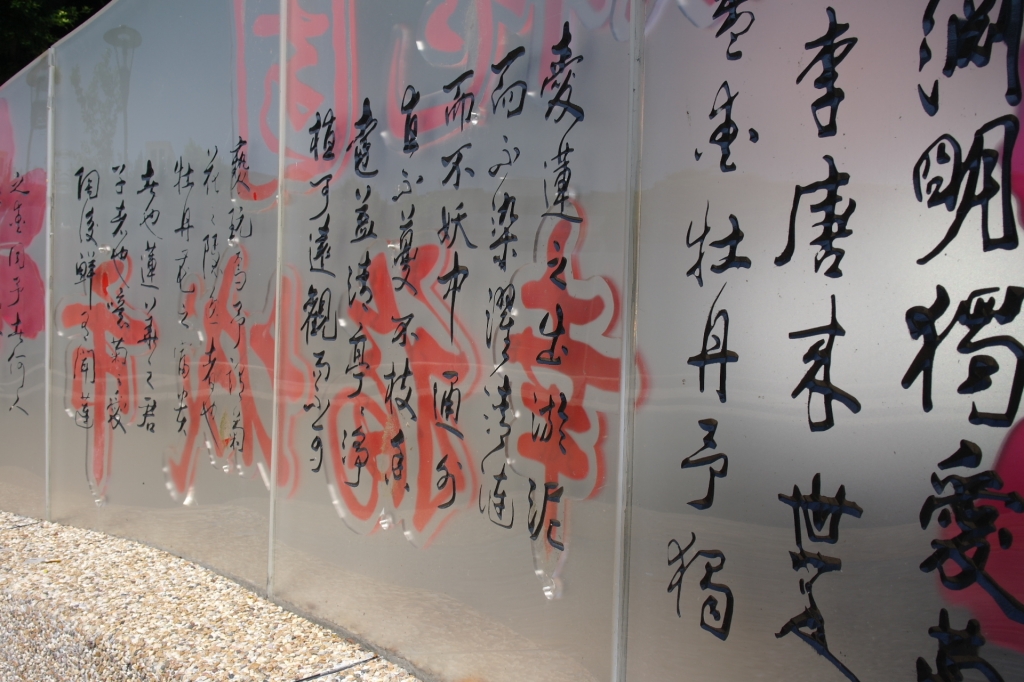 淵明獨愛菊
李唐來世人
盛愛牡丹予獨
愛蓮之出淤泥
而不染濯清漣
而不妖中通外
直不蔓不枝香
遠益清亭亭淨
植可遠觀而不可
褻玩焉予謂菊
花之隱逸者也
牡丹花之富貴
者也蓮華之君
子者也噫菊之愛
陶後鮮有聞蓮
之愛同予者何人